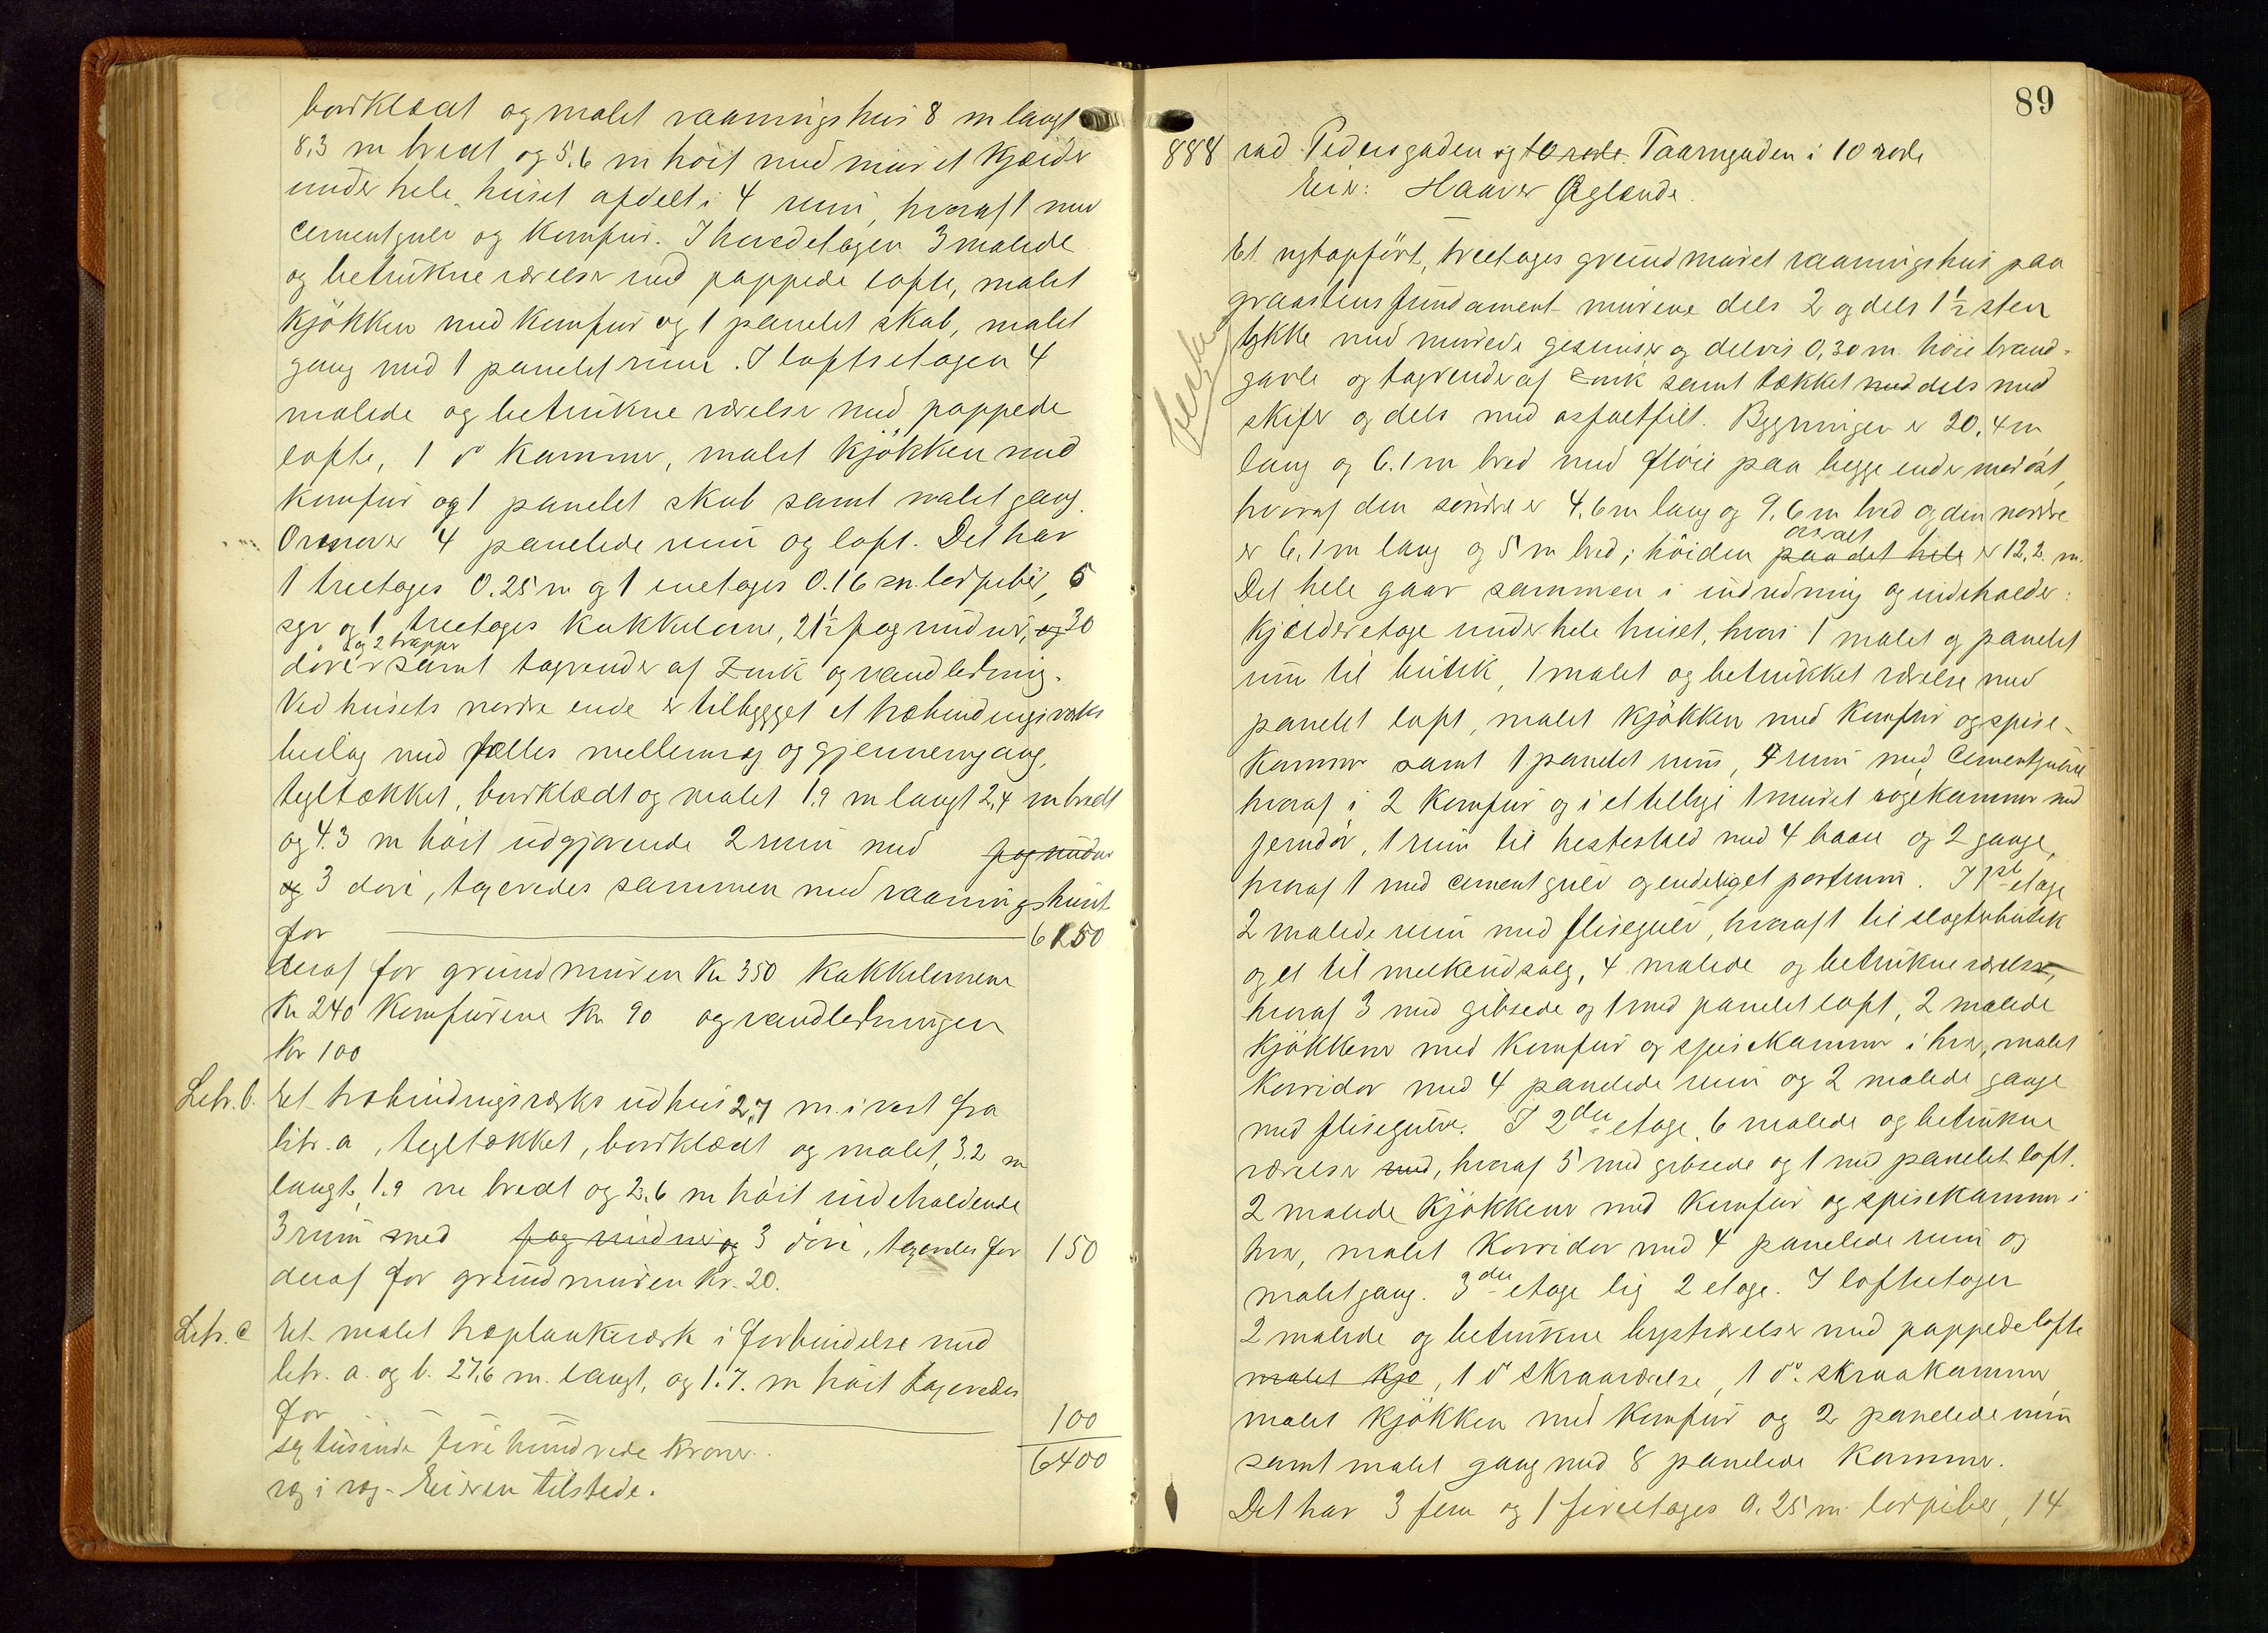 bordklædt og malet vaaningshus 8 m langt
8,3 m bredt og 5,6 m høit med muret kjælder
under hele huset afdelt i 4 rum, hvoraf 1 med
cementgulv og komfur. I hovedetagen 3 malede
og betrukne værelser med pappede lofte, malet
kjøkken med komfur og 1 panelet skab, malet
gang med 1 panelet rum. I loftsetagen 4
malede og betrukne værelser med pappede
lofte, 1 do kammer, malet kjøkken med
komfur og 1 panelet skab samt malet gang.
Ovenover 4 panelede rum og loft. Det har
1 treetages 0.25 m og 1 enetages 0.16 m. lodpiber, 5
sgr og 1 treetages kakkelovne, 21½ fag vinduer, og 30
og 2 trapper
døre samt tagrender af zink og vandledning.
Ved husets nordre ende er tilbygget et træbindingsværks
bislag med fælles mellemvæg og gjennemgang,
tegltækket, bordklædt og malet 1,9 m langt 2,4 m bredt
og 4.3 m høit udgjørende 2 rum med fag vinduer
og 3 døre, taxeredes sammen med vaaningshuset
for 6150
deraf for grundmuren Kr 350 kakkelovnene
Kr 240 komfurene Kr 90 og vandledningen
Kr 100
Litr. b. Et træbindingsværks udhus 2,7 m. i vest fra
litr. a, tegltækket, bordklædt og malet, 3.2 m
langt, 1.9 m bredt og 2,6 m høit indeholdende
3 rum med fag vinduer og 3 døre, taxeredes for 150
deraf for grundmuren Kr. 20.
Litr. c Et malet træplankeværk i forbindelse med
litr. a. og b. 27,6 m. langt, og 1.7. m høit taxeredes
for 100
sex tusinde fire hundrede kroner. 6400
væg i væg - Eieren tilstede.
89
888 ved Pedersgaden og 10 rode. Taarngaden i 10 rode
Eier: Haaver Øglænde.
Et nytopført, treetages grundmuret vaaningshus paa
graastensfundament murene dels 2 og dels 1½ sten
tykke med murede gesimser og delvis 0,30 m høie brand-
gavle og tagrender af zink samt tækket med dels med
skifer og dels med asfaltfilt. Bygningen er 20,4 m
lang og 6.1 m bred med fløie paa begge ender mod øst,
hvoraf den søndre er 4,6 m lang og 9,6 m bred og den nordre
overalt
er 6,1 m lang og 5 m bred; høiden paa det hele er 12,2 m.
Det hele gaar sammen i indredning og indeholder:
Kjælderetage under hele huset, hvori 1 malet og panelet
rum til butik, 1 malet og betrukket værelse med
panelet loft, malet kjøkken med komfur og spise-
kammer samt 1 panelet rum, 4 rum med cementgulve
hvoraf i 2 komfur og i et tillige 1 muret røgekammer med
jerndør, 1 rum til hestestald med 4 baase og 2 gange,
hvoraf 1 med cementgulv og endeligt portrum. I 1ste etage
2 malede rum med flisegulv, hvoraf 1 til slagterbutik
og et til melkeudsalg, 4 malede og betrukne værelser,
hvoraf 3 med gibsede og 1 med panelet loft, 2 malede
kjøkkener med komfur og spisekammer i hver, malet
korridor med 4 panelede rum og 2 malede gange
med flisegulve. I 2den etage 6 malede og betrukne
værelser med, hvoraf 5 med gibsede og 1 med panelet loft.
2 malede kjøkkener med komfur og spisekammer i
hver, malet korridor med 4 panelede rum og
malet gang. 3die etage lig 2 etage. I loftsetagen
2 malede og betrukne brystværelser med pappede lofte
malet kjø, 1 do skraaværelse, 1 do. skraakammer,
malet kjøkken med komfur og 2 panelede rum
samt malet gang med 8 panelede kammer.
Det har 3 fem og 1 fireetages 0.25 m lodpiber, 14